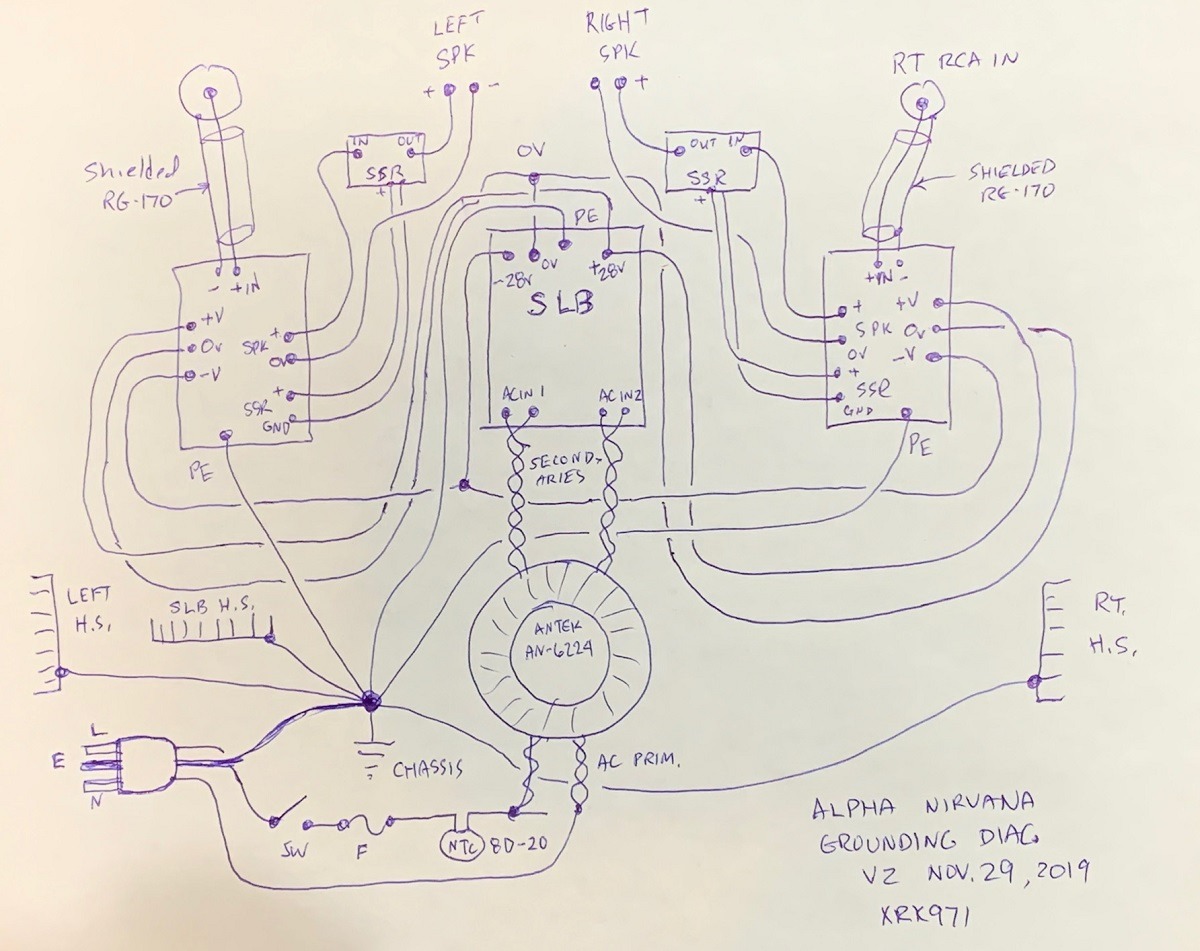 LEFT
SPK
+ -
RIGHT
SPK
+
RT RCA IN
Shielded
RG-170
IN OUT
SSR
+
0V
OUT IN
SSR
+
SHIELDED
RG-170
PE
-28V 0V +28V
SLB
AC IN 1 AC IN 2
- +IN
+V
0V
-V
SPK +
0V
+
SSR
GND
PE
+IN -
+ +V
SPK 0V
0V -V
+
SSR
GND
PE
SECOND-
ARIES
ANTEK
AN-6224
LEFT
H.S.
SLB H.S.
RT.
H.S.
L
E
N
CHASSIS
AC PRIM.
SW F NTC 8D-20
ALPHA NIRVANA
GROUNDING DIAG.
V2 NOV. 29, 2019
XRK971